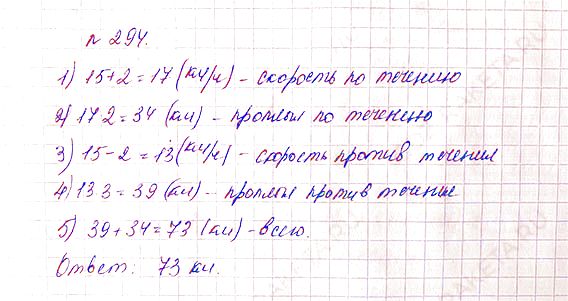 № 294.
1) 15+2=17 (км/ч) - скорость по течению
2) 17 2=34 (км) - проплыл по течению
3) 15-2=13 (км/ч) - скорость против течения
4) 13 3=39 (км) - проплыл против течение
5) 39+34=73 (км) - всего.
Ответ: 73 км.